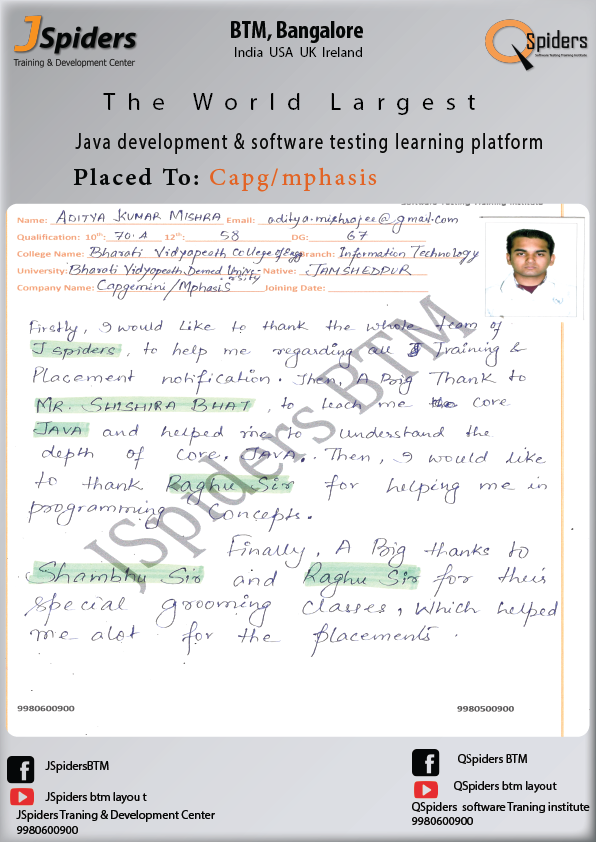 JSpiders
Training & Development Center
BTM, Bangalore
India USA UK Ireland
QSpiders
Software Testing Training Institute
The World Largest
Java development & software testing learning platform
Placed To: Capg/mphasis
Software Testing Training Institute
Name: ADITYA KUMAR MISHRA Email: aditya.mishrajee@gmail.com
Qualification: 10th: 70.4 12th: 58 DG: 67
College Name: Bharati Vidyapeeth College of Engg Branch: Information Technology
University: Bharati Vidyapeeth Demed University Native: JAMSHEDPUR
Company Name: Capgemini/Mphasis Joining Date:
Firstly, I would like to thank the whole team of
J spiders, to help me regarding all Training &
Placement notification. Then, A Big Thank to
MR. SHISHIRA BHAT, to teach me core
JAVA and helped me to understand the
depth of core. JAVA.. Then, I would like
to thank Raghu Sir for helping me in
programming Concepts.
Finally, A Big thanks to
Shambhu Sir and Raghu Sir for their
special grooming classes, which helped
me alot for the placements.
JSpiders BTM
9980600900
9980500900
JSpidersBTM
JSpiders btm layou t
JSpiders Traning & Development Center
9980600900
QSpiders BTM
QSpiders btm layout
QSpiders software Traning institute
9980600900